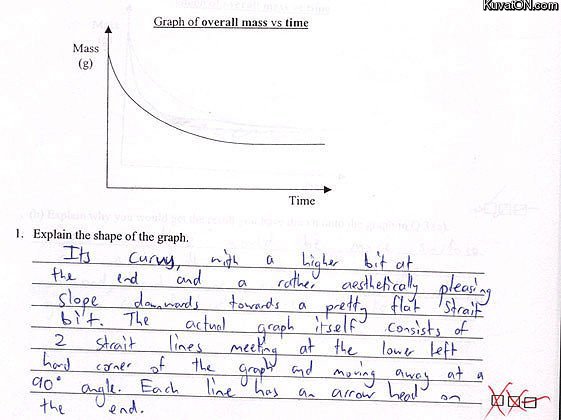 KuvatON.com
Graph of overall mass vs time
Mass
(g)
Time
1. Explain the shape of the graph.
Its curvy, with a higher bit at
the end and a rather aesthetically pleasing
slope downwards towards a pretty flat strait
bit. The actual graph itself consists of
2 strait lines meeting at the lower left
hand corner of the graph and moving away at a
90° angle. Each line has an arrow head on
the end.